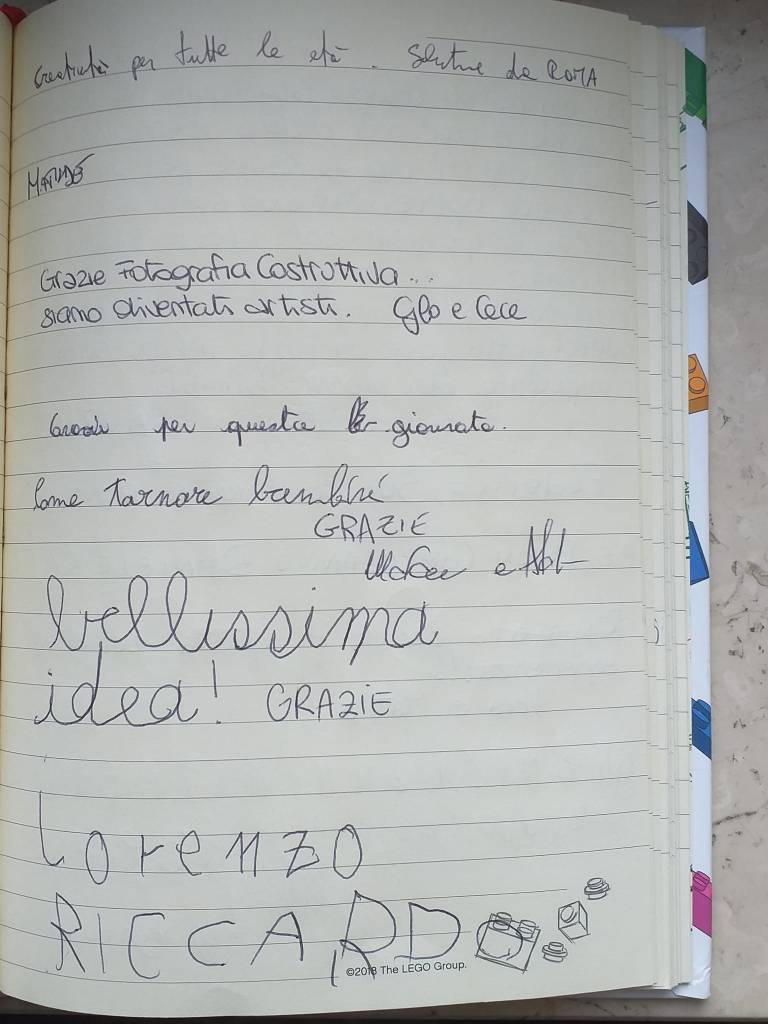 Creatività per tutte le età. da ROMA
Grazie Fotografia Costruttiva...
siamo diventati artisti. Glo e Cece
per questa giornata.
Come tornare bambini
GRAZIE
e
bellissima
idea! GRAZIE
Lorenzo
RICCARDO
©2018 The LEGO Group.